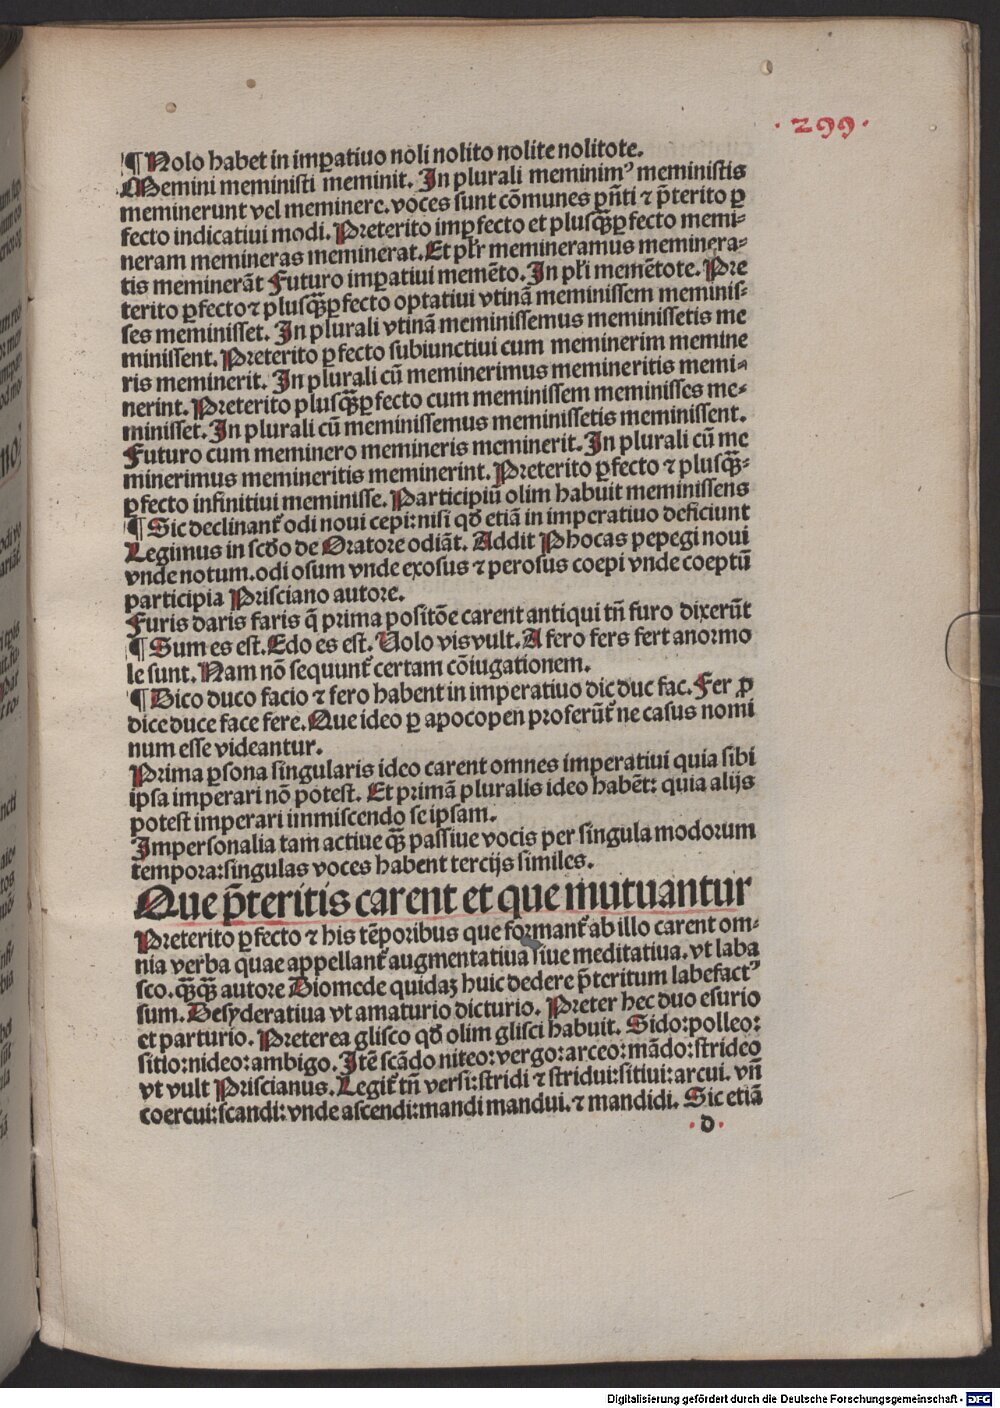 · 299 ·
¶ Nolo habet in imꝑatiuo noli nolito nolite nolitote.
Memini meministi meminit. In plurali meminimꝰ meministis
meminerunt vel meminere. voces sunt cōmunes pn̄ti et p̄terito ꝑ
fecto indicatiui modi. Preterito imꝑfecto et plusqᷓꝑfecto memi-
neram memineras meminerat. Et plr̄ memineramus meminera-
tis meminerāt Futuro imꝑatiui memēto. In plr̄i memētote. Pre
terito ꝑfecto ⁊ plusqᷓꝑfecto optatiui vtinā meminissem meminis-
ses meminisset. In plurali vtinā meminissemus meminissetis me
minissent. Preterito ꝑfecto subiunctiui cum meminerim memine
ris meminerit. In plurali cū meminerimus memineritis memi-
nerint. Preterito plusqᷓꝑfecto cum meminissem meminisses me-
minisset. In plurali cū meminissemus meminissetis meminissent.
Futuro cum meminero memineris meminerit. In plurali cū me
minerimus memineritis meminerint. Preterito ꝑfecto ⁊ plusqᷓ-
ꝑfecto infinitiui meminisse. Participiū olim habuit meminissens
¶ Sic declinant᷑ odi noui cepi: nisi qđ etiā in imperatiuo deficiunt
Legimus in scđo de Oratore odiāt. Addit Phocas pepegi noui
vnde notum. odi osum vnde exosus ⁊ perosus coepi vnde coeptū
participia Prisciano autore.
Furis daris faris q̄ prima positōe carent antiqui tn̄ furo dixerūt
¶ Sum es est. Edo es est. Uolo vis vult. A fero fers fert anormo
le sunt. Nam nō sequunt᷑ certam cōiugationem.
¶ Dico duco facio ⁊ fero habent in imperatiuo dic duc fac. Fer ꝓ
dice duce face fere. Que ideo ꝑ apocopen proferūt᷑ ne casus nomi
num esse videantur.
Prima ꝑsona singularis ideo carent omnes imperatiui quia sibi
ipsa imperari nō potest. Et primā pluralis ideo habēt: quia alijs
potest imperari immiscendo se ipsam.
Impersonalia tam actiue qᷓꝫ passiue vocis per singula modorum
tempora: singulas voces habent tercijs similes.
Que p̄teritis carent et que mutuantur
Preterito ꝑfecto ⁊ his tēporibus que formant᷑ ab illo carent om-
nia verba quae appellant᷑ augmentatiua siue meditatiua. vt laba
sco. qᷓꝫqᷓꝫ autore Diomede quidaꝫ huic dedere p̄teritum labefactꝰ
sum. Desyderatiua vt amaturio dicturio. Preter hec duo esurio
et parturio. Preterea glisco qđ olim glisci habuit. Sido: polleo:
sitio: nideo: ambigo. Itē scādo niteo: vergo: arceo: mādo: strideo
vt vult Priscianus. Legit᷑ tn̄ versi: stridi ⁊ stridui: sitiui: arcui. vn̄
coercui: scandi: vnde ascendi: mandi mandui. ⁊ mandidi. Sic etiā
· d ·
Digitalisierung gefördert durch die Deutsche Forschungsgemeinschaft - DFG